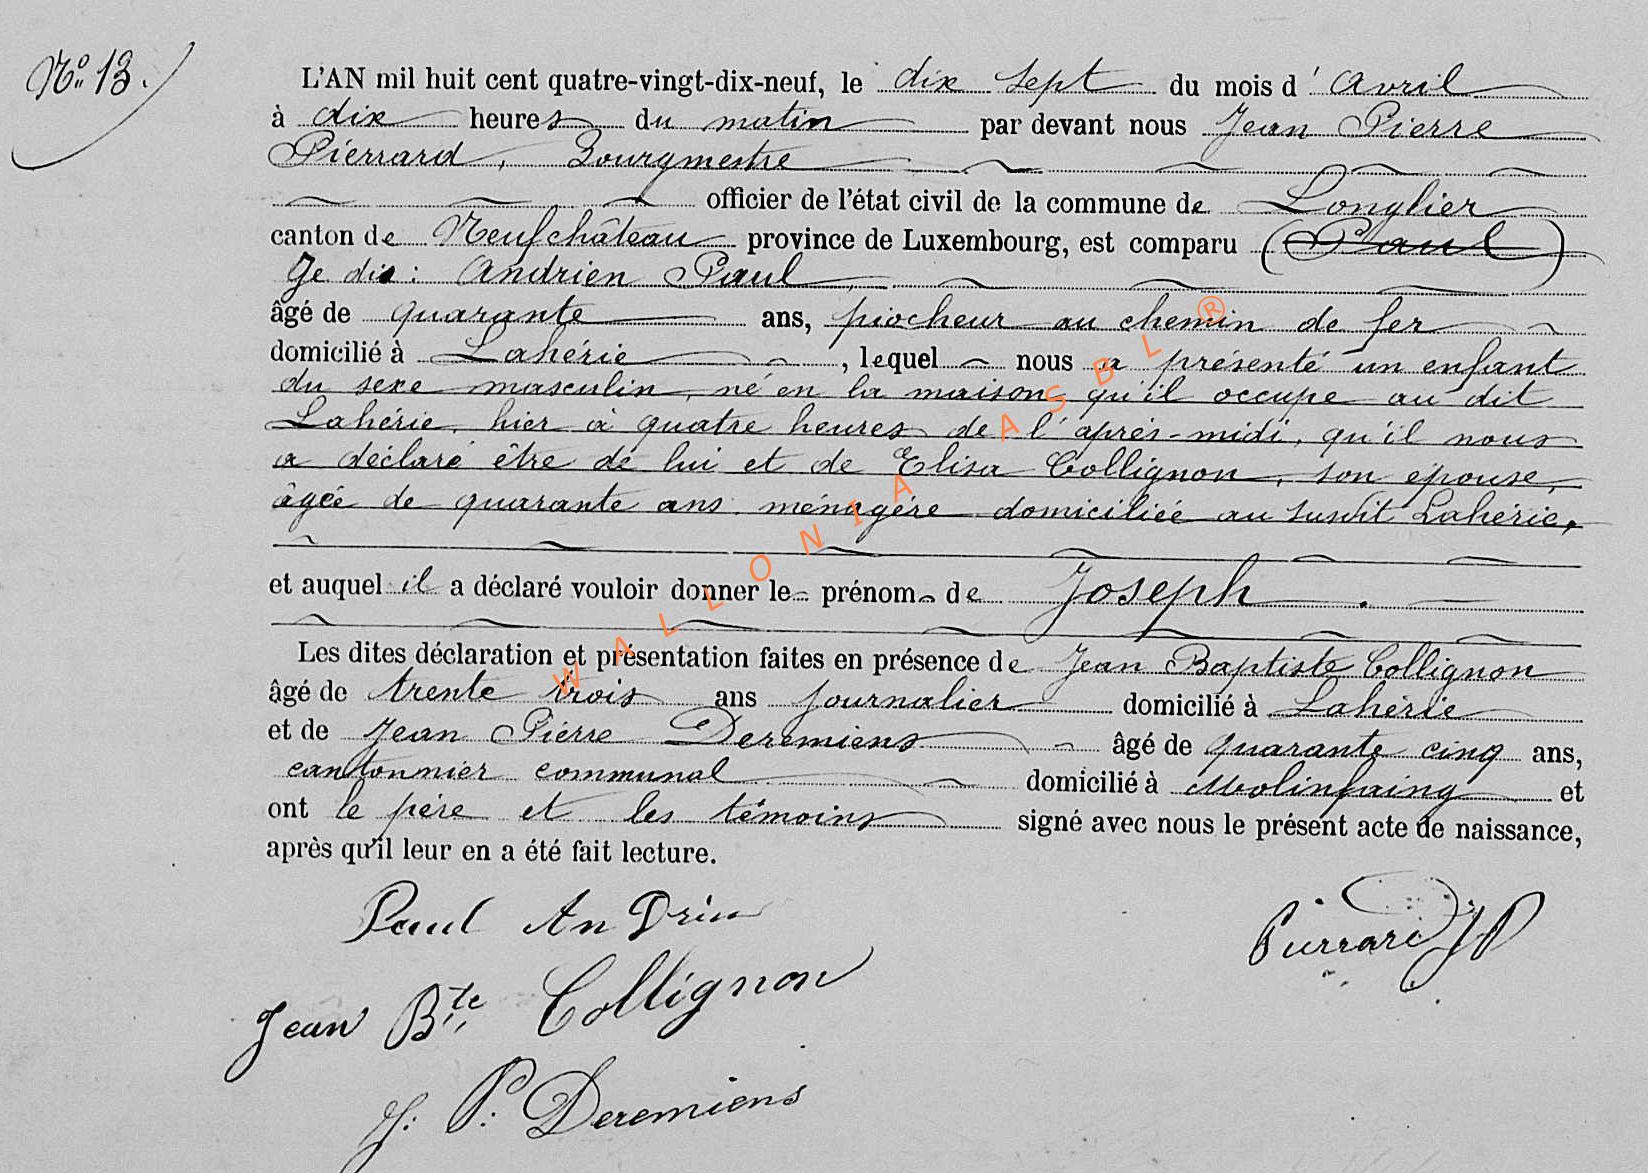 N° 13.
L'AN mil huit cent quatre-vingt-dix-neuf, le dix sept du mois d' Avril
à dix heures du matin par devant nous Jean Pierre
Pierrard, Bourgmestre
officier de l'état civil de la commune de Longlier
canton de Neufchâteau province de Luxembourg, est comparu (Paul)
Je dis : Andrien Paul
âgé de quarante ans, piocheur au chemin de fer
domicilié à Lahérie, lequel nous a présenté un enfant
du sexe masculin, né en la maison qu'il occupe au dit
Lahérie, hier à quatre heures de l'après-midi, qu'il nous
a déclaré être de lui et de Elisa Collignon, son épouse,
âgée de quarante ans ménagère domiciliée au susdit Lahérie,
et auquel il a déclaré vouloir donner le prénom de Joseph.
Les dites déclaration et présentation faites en présence de Jean Baptiste Collignon
âgé de trente trois ans journalier domicilié à Lahérie
et de Jean Pierre Deremiens âgé de quarante cinq ans,
cantonnier communal domicilié à Molinfaing et
ont le père et les témoins signé avec nous le présent acte de naissance,
après qu'il leur en a été fait lecture.
Paul AnDrien
Pierrard JP
Jean Bte Collignon
J. P. Deremiens
WALLONIA ASBL ®